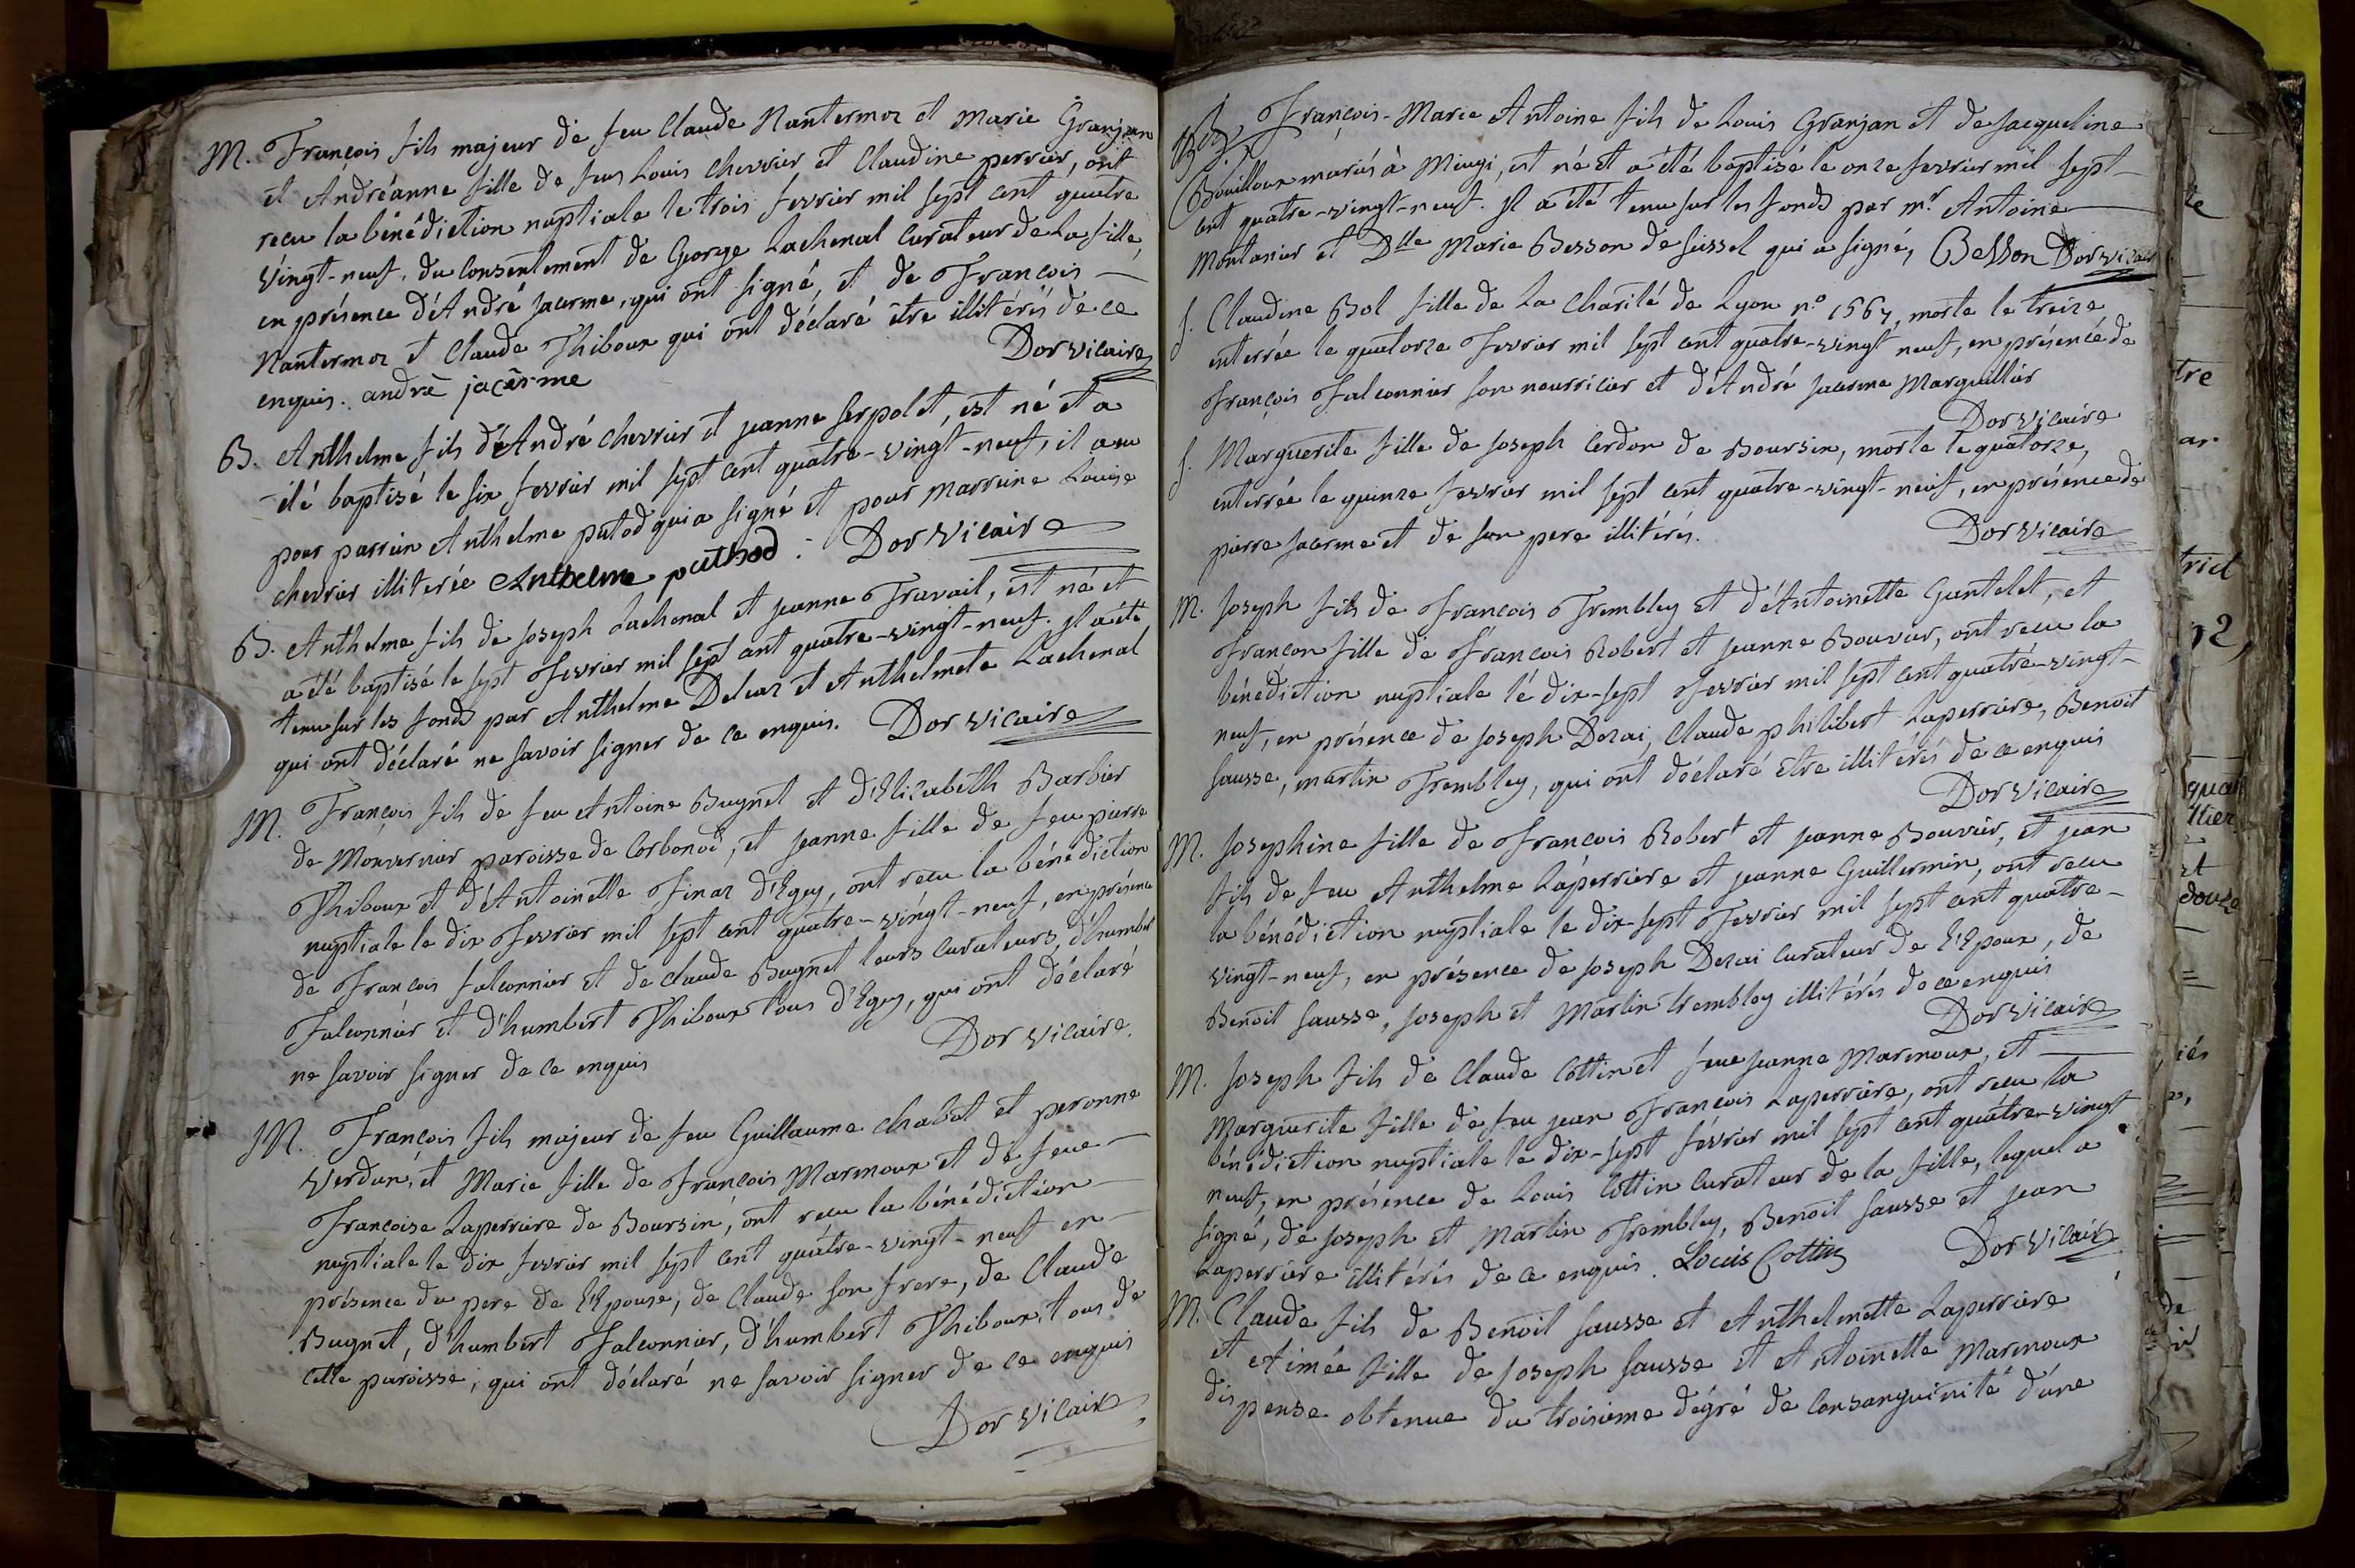 M. François fils majeur de feu Claude Nantermoz et Marie Granjean
et Andréanne fille de feus Louis chevrier et Claudine perrier, ont
recu la bénédiction nuptiale le trois fevrier mil sept cent quatre
vingt-neuf, du consentement de George Lachenal curateur de la fille,
en présence d'André jacerme, qui ont signé, et de François
Nantermoz et Claude Thiboux qui ont déclaré être illitérés de ce
enquis. andrè jacèrme Dor vicaire
B. Anthelme fils d'André chevrier et jeanne serpolet, est né et a
été baptisé le six fevrier mil sept cent quatre-vingt-neuf, il a eu
pour parrein Anthelme putod qui a signé et pour marreine Louise
chevrier illiterée Anthelme puthod. Dor vicaire
B. Anthelme fils de joseph Lachenal et jeanne Travail, est né et
a été baptisé le sept fevrier mil sept cent quatre-vingt-neuf. il a été
tenu sur les fonds par Anthelme Delcar et Anthelmete Lachenal
qui ont déclaré ne savoir signer de ce enquis. Dor vicaire
M. François fils de feu Antoine Bugnet et d'Elizabeth Barbier
de Monvernier paroisse de Corbonod, et jeanne fille de feu pierre
Thiboux et d'Antoinette Finaz d'Egey, ont recu la bénédiction
nuptiale le dix fevrier mil sept cent quatre-vingt-neuf, en présence
de François falconnier et de claude Bugnet leurs curateurs, d'humbert
Falconnier et d'humbert Thiboux tous d'Egey, qui ont déclaré
ne savoir signer de ce enquis Dor vicaire.
M. François fils majeur de feu Guillaume chabot et peronne
Verdun, et Marie fille de François Marmoux et de feue
Françoise Laperriere de Boursin, ont recu la bénédiction
nuptiale le dix fevrier mil sept cent quatre-vingt-neuf en
présence du pere de l'Epouse, de Claude son frere, de Claude
Bugnet, d'humbert Falconnier, d'humbert Thiboux, tous de
cette paroisse, qui ont déclaré ne savoir signer de ce enquis
Dor vicaire
B. François-Marie Antoine fils de Louis Granjan et de jacqueline
Bouilloux mariés à Mingi, est né et a été baptisé le onze fevrier mil sept
cent quatre-vingt-neuf. il a été tenu sur les fonds par mr Antoine
Montanier et Dlle Marie Besson de seissel qui a signé, Besson Dor vicaire
f. Claudine Bol fille de la charité de Lyon n° 1567, morte le treize
enterrée le quatorze fevrier mil sept cent quatre-vingt neuf, en présence de
François Falconnier son nourricier et d'André jacerme Marguillier
Dor vicaire
f. Marguerite fille de joseph Cerdon de Boursin, morte le quatorze,
enterrée le quinze fevrier mil sept cent quatre-vingt-neuf, en présence de
pierre jacerme et de son pere illitérés. Dor vicaire
M. joseph fils de François Trembley et d'Antoinette Gantelet, et
Francon fille de François Robert et jeanne Bouvier, ont recu la
bénédiction nuptiale le dix-sept fevrier mil sept cent quatre-vingt-
neuf, en présence de joseph Dezai, Claude philibert Laperriere, Benoit
sausse, martin Trembley, qui ont déclaré être illitérés de ce enquis
Dor vicaire
M. josephine fille de François Robert et jeanne Bouvier, et jean
fils de feu Anthelme Laperriere et jeanne Guillermin, ont recu
la bénédiction nuptiale le dix-sept fevrier mil sept cent quatre-
vingt-neuf, en présence de joseph Dezai curateur de l'Epoux, de
Benoit sausse, joseph et Martin trembley illitérés de ce enquis
Dor vicaire
M. joseph fils de Claude Cottin et feue jeanne Marmoux, et
Marguerite fille de feu jean François Laperriere, ont recu la
bénédiction nuptiale le dix-sept fevrier mil sept cent quatre-vingt
neuf, en présence de Louis Cottin curateur de la fille, lequel a
signé, de joseph et Martin Trembley, Benoit sausse et jean
Laperriere illitérés de ce enquis. Louis Cottin Dor vicaire
M. Claude fils de Benoit sausse et Anthelmette Laperriere
et Aimée fille de joseph sausse et Antoinette Marmoux
dispense obtenue du troisieme dégré de consanguinité d'une